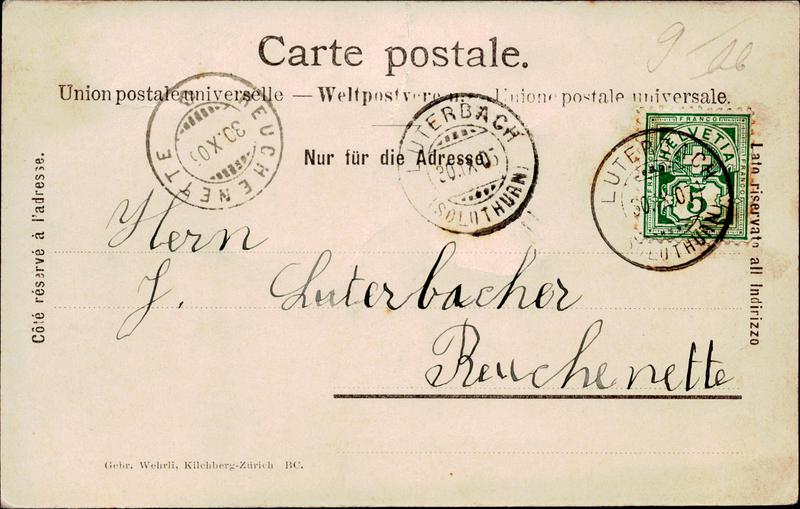 Carte postale.
9 - 06
Union postale universelle — Weltpostverein — Unione postale universale.
Nur für die Adresse.
Côté réservé à l'adresse.
Lato riservato all Indirizzo
REUCHENETTE
30.X.05
LUTERBACH
30.IX.05
(SOLOTHURN)
FRANCO
HELVETIA
5
LUTERBACH
(SOLOTHURN)
Hern
J. Luterbacher
Reuchenette
Gebr. Wehrli, Kilchberg-Zürich BC.